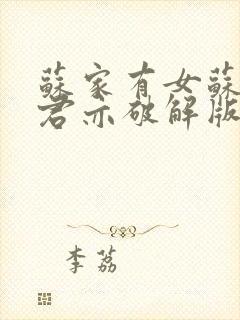 蘇家有女蘇
君亦破解版
李荔